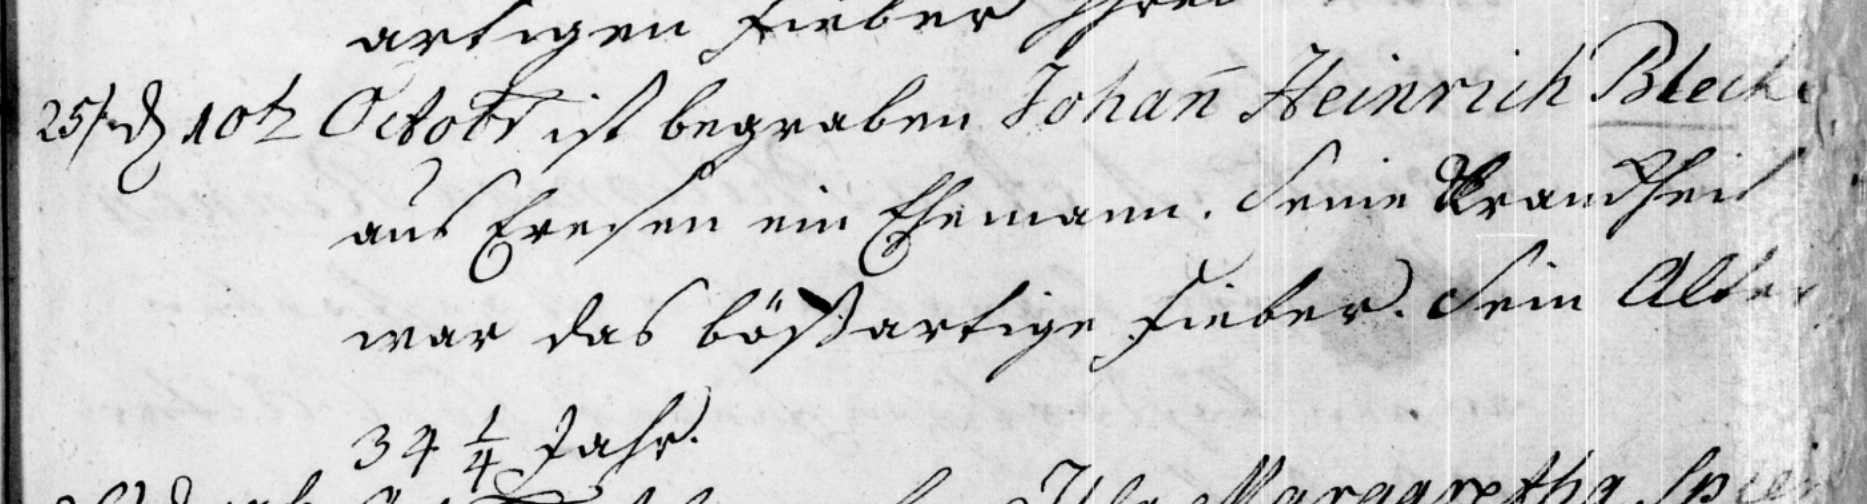 artigen Fieber
25/. d 10t Octobr ist begraben Johan̄ Heinrich Bleck
aus Eresen ein Ehemann. Seine Kranckheit
war das bößartige Fieber. Sein Alter
34 1/4 Jahr.
Margaretha